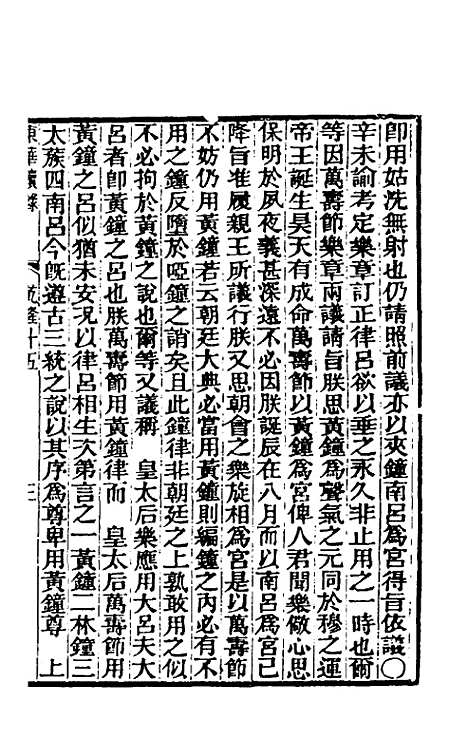 卽用姑洗無射也仍請照前議亦以夾鐘南呂爲宮得旨依議〇
辛未諭考定樂章訂正律呂欲以垂之永久非止用之一時也爾
等因萬壽節樂章兩議請旨朕思黃鐘爲聲氣之元同於穆之運
帝王誕生昊天有成命萬壽節以黃鐘爲宮俾人君聞樂儆心思
保明於夙夜義甚深遠不必因朕誕辰在八月而以南呂爲宮已
降旨准履親王所議行朕又思朝會之樂旋相爲宮是以萬壽節
不妨仍用黃鐘若云朝廷大典必當用黃鐘則編鐘之內必有不
用之鐘反墮於啞鐘之誚矣且此鐘律非朝廷之上孰敢用之似
不必拘於黃鐘之說也爾等又議稱　皇太后樂應用大呂夫大
呂者卽黃鐘之呂也朕萬壽節用黃鐘律而　皇太后萬壽節用
黃鐘之呂似猶未安況以律呂相生次第言之一黃鐘二林鐘三
太蔟四南呂今旣遵古三統之說以其序爲尊卑用黃鐘尊　上
東華續錄　乾隆十五　三